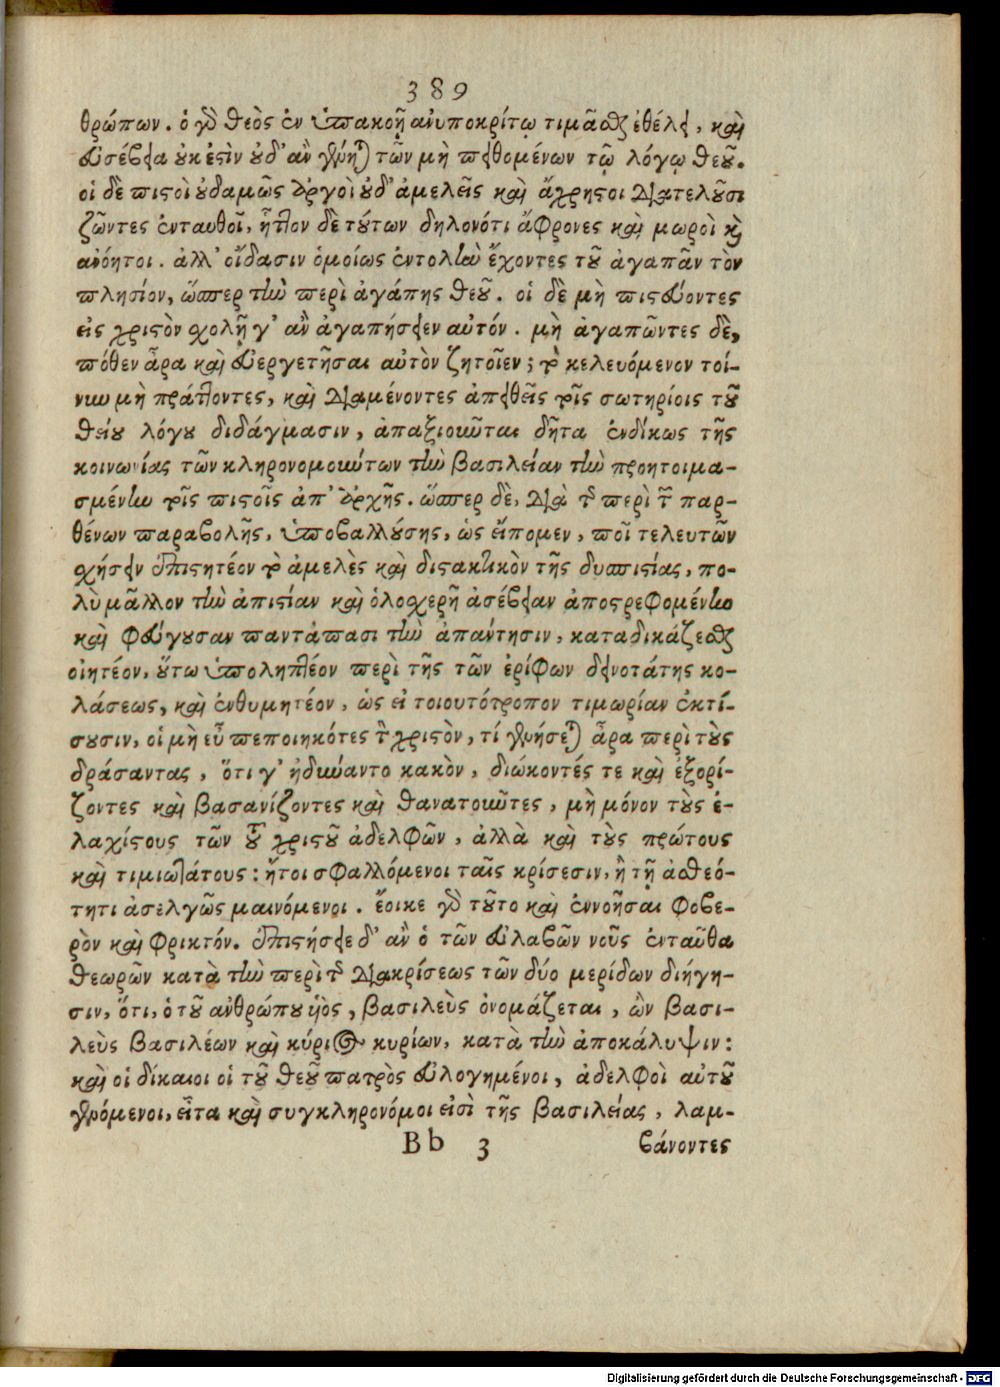 389
θρώπων. ὁ γὰρ θεὸς ἐν ὑπακοῇ ἀνυποκρίτῳ τιμᾶσθαι ἐθέλει, καὶ
εὐσέβεια οὐκ ἔστιν οὐδ' ἂν γένηται τῶν μὴ πειθομένων τῷ λόγῳ θεοῦ.
οἱ δὲ πιστοὶ οὐδαμῶς ἀργοὶ οὐδ' ἀμελεῖς καὶ ἄχρηστοι διατελοῦσι
ζῶντες ἐνταυθοῖ, ἧττον δὲ τούτων δηλονότι ἄφρονες καὶ μωροὶ καὶ
ἀνόητοι. ἀλλ' οἴδασιν ὁμοίως ἐντολὴν ἔχοντες τοῦ ἀγαπᾶν τὸν
πλησίον, ὥσπερ τὴν περὶ ἀγάπης θεοῦ. οἱ δὲ μὴ πιστεύοντες
εἰς χριστὸν σχολῇ γ' ἂν ἀγαπήσειεν αὐτόν. μὴ ἀγαπῶντες δὲ,
πόθεν ἆρα καὶ εὐεργετῆσαι αὐτὸν ζητοῖεν; τὸ κελευόμενον τοί-
νυν μὴ πράττοντες, καὶ διαμένοντες ἀπειθεῖς τοῖς σωτηρίοις τοῦ
θείου λόγου διδάγμασιν, ἀπαξιοῦνται δῆτα ἐνδίκως τῆς
κοινωνίας τῶν κληρονομούντων τὴν βασιλείαν τὴν προητοιμα-
σμένην τοῖς πιστοῖς ἀπ' ἀρχῆς. ὥσπερ δὲ, διὰ τῆς περὶ τῶν παρ-
θένων παραβολῆς, ὑποβαλλούσης, ὡς εἴπομεν, ποῖ τελευτῶν
σχήσειν ἐπιστητέον τὸ ἀμελὲς καὶ διστακτικὸν τῆς δυσπιστίας, πο-
λὺ μᾶλλον τὴν ἀπιστίαν καὶ ὁλοσχερῆ ἀσέβειαν ἀποστρεφομένην
καὶ φεύγουσαν παντάπασι τὴν ἀπάντησιν, καταδικάζεσθαι
οἰητέον, οὕτω ὑποληπτέον περὶ τῆς τῶν ἐρίφων δεινοτάτης κο-
λάσεως, καὶ ἐνθυμητέον, ὡς εἰ τοιουτότροπον τιμωρίαν ἐκτί-
σουσιν, οἱ μὴ εὖ πεποιηκότες τὸν χριστὸν, τί γενήσεται ἆρα περὶ τοὺς
δράσαντας, ὅτι γ' ἠδύναντο κακὸν, διώκοντές τε καὶ ἐξορί-
ζοντες καὶ βασανίζοντες καὶ θανατοῦντες, μὴ μόνον τοὺς ἐ-
λαχίστους τῶν τοῦ χριστοῦ ἀδελφῶν, ἀλλὰ καὶ τοὺς πρώτους
καὶ τιμιωτάτους: ἤτοι σφαλλόμενοι ταῖς κρίσεσιν, ἢ τῇ ἀθεό-
τητι ἀσελγῶς μαινόμενοι. ἔοικε γὰρ τοῦτο καὶ ἐννοῆσαι φοβε-
ρὸν καὶ φρικτόν. ἐπιστήσειε δ' ἂν ὁ τῶν εὐλαβῶν νοῦς ἐνταῦθα
θεωρῶν κατὰ τὴν περὶ τῆς διακρίσεως τῶν δύο μερίδων διήγη-
σιν, ὅτι, ὁ τοῦ ἀνθρώπου υἱὸς, βασιλεὺς ὀνομάζεται, ὢν βασι-
λεὺς βασιλέων καὶ κύριος κυρίων, κατὰ τὴν ἀποκάλυψιν:
καὶ οἱ δίκαιοι οἱ τοῦ θεοῦ πατρὸς εὐλογημένοι, ἀδελφοὶ αὐτοῦ
γενόμενοι, εἶτα καὶ συγκληρονόμοι εἰσὶ τῆς βασιλείας, λαμ-
Bb 3 βάνοντες
Digitalisierung gefördert durch die Deutsche Forschungsgemeinschaft - DFG